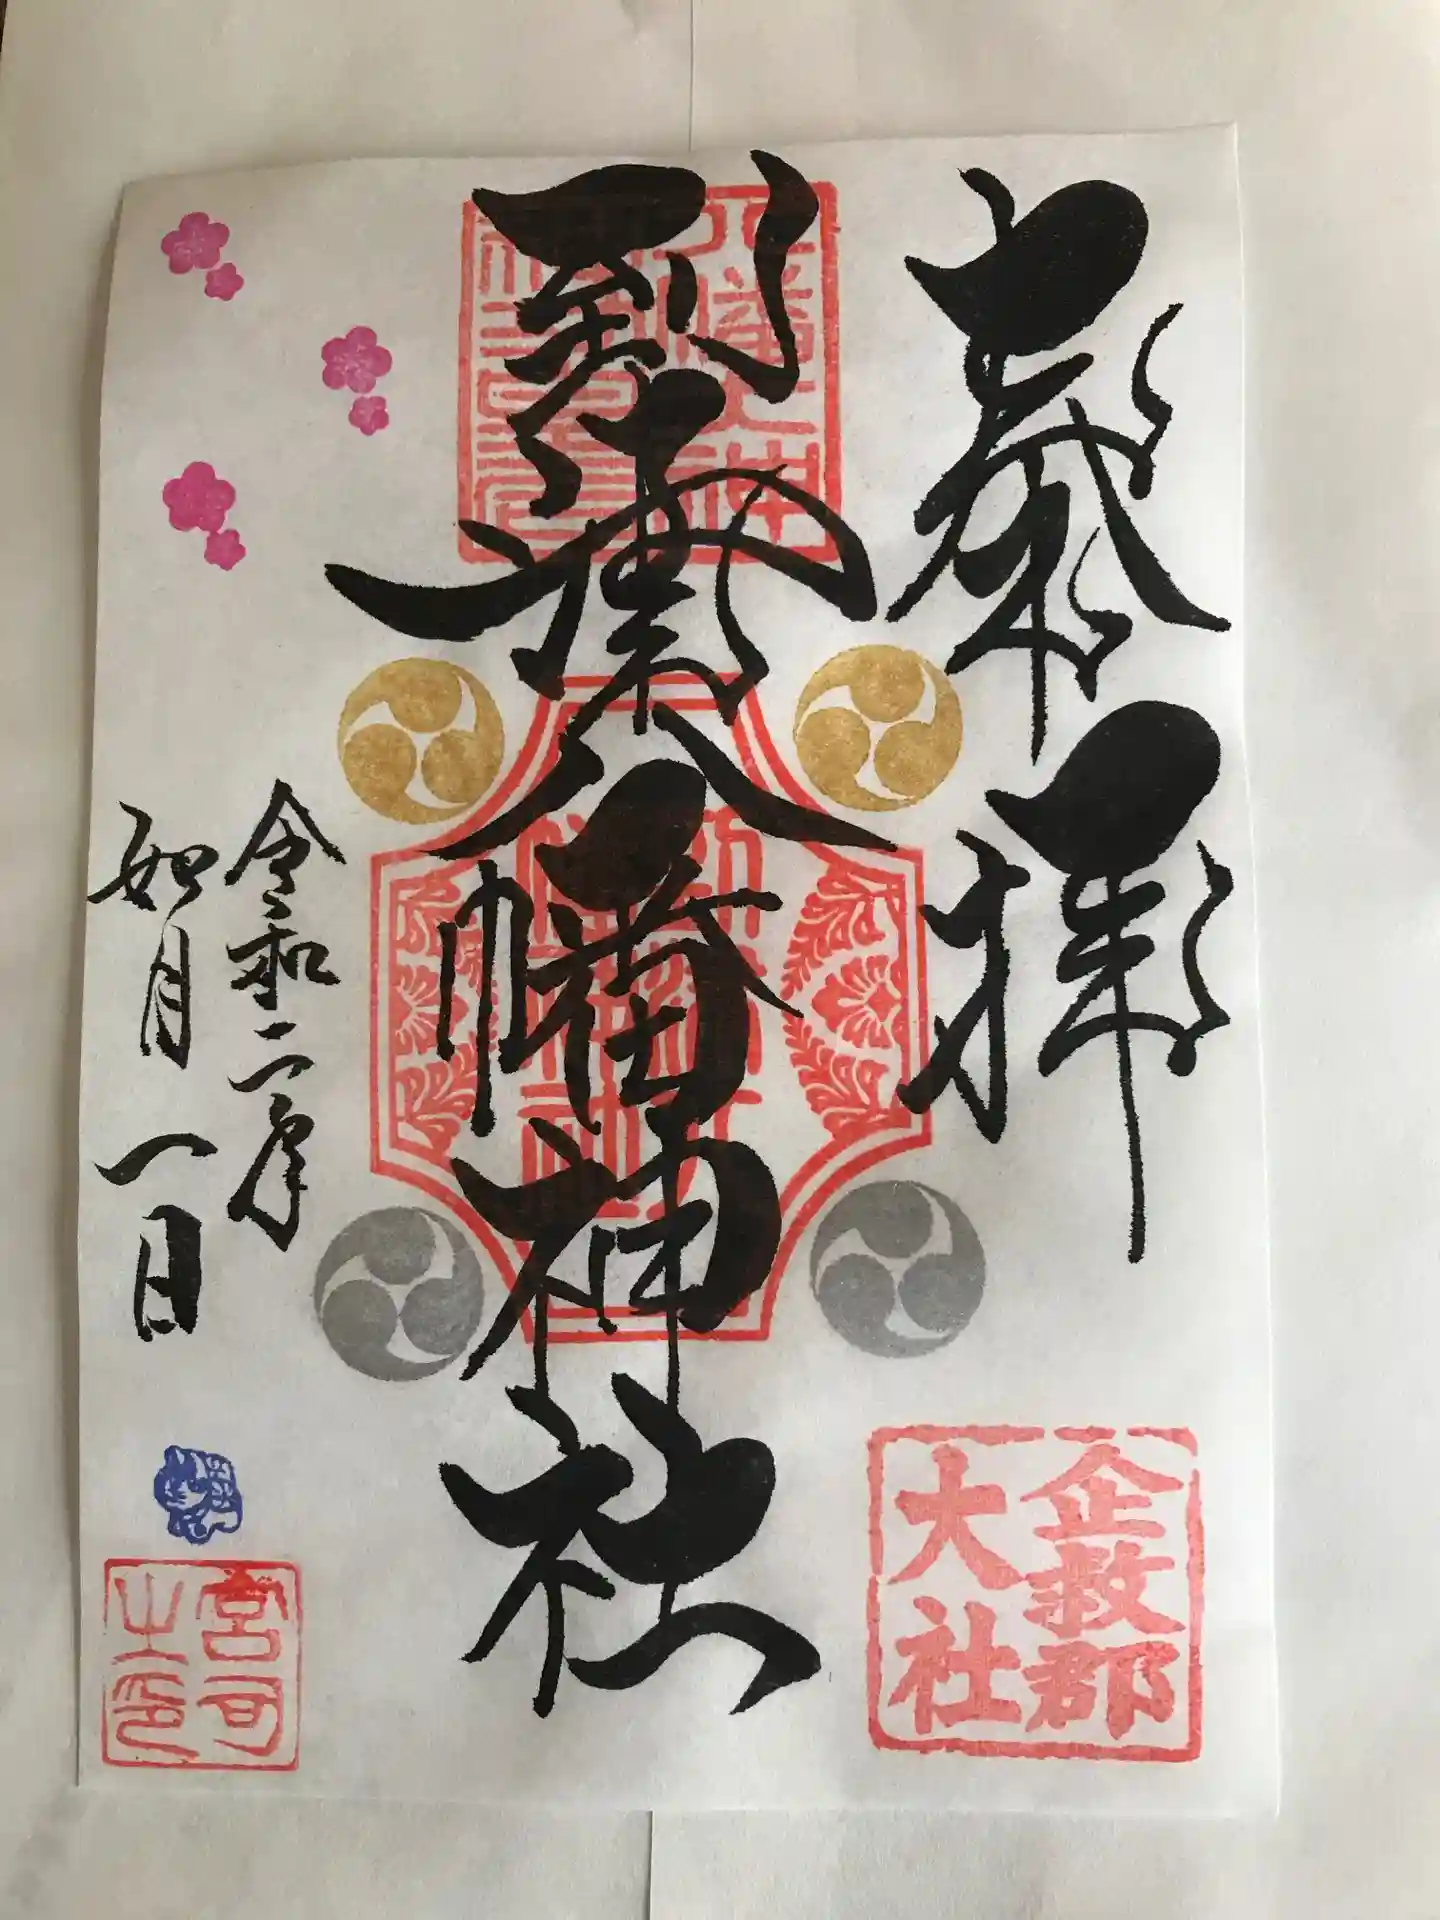 奉拝
企救郡
大社
到津八幡神社
令和二年
如月一日
宮司
之印